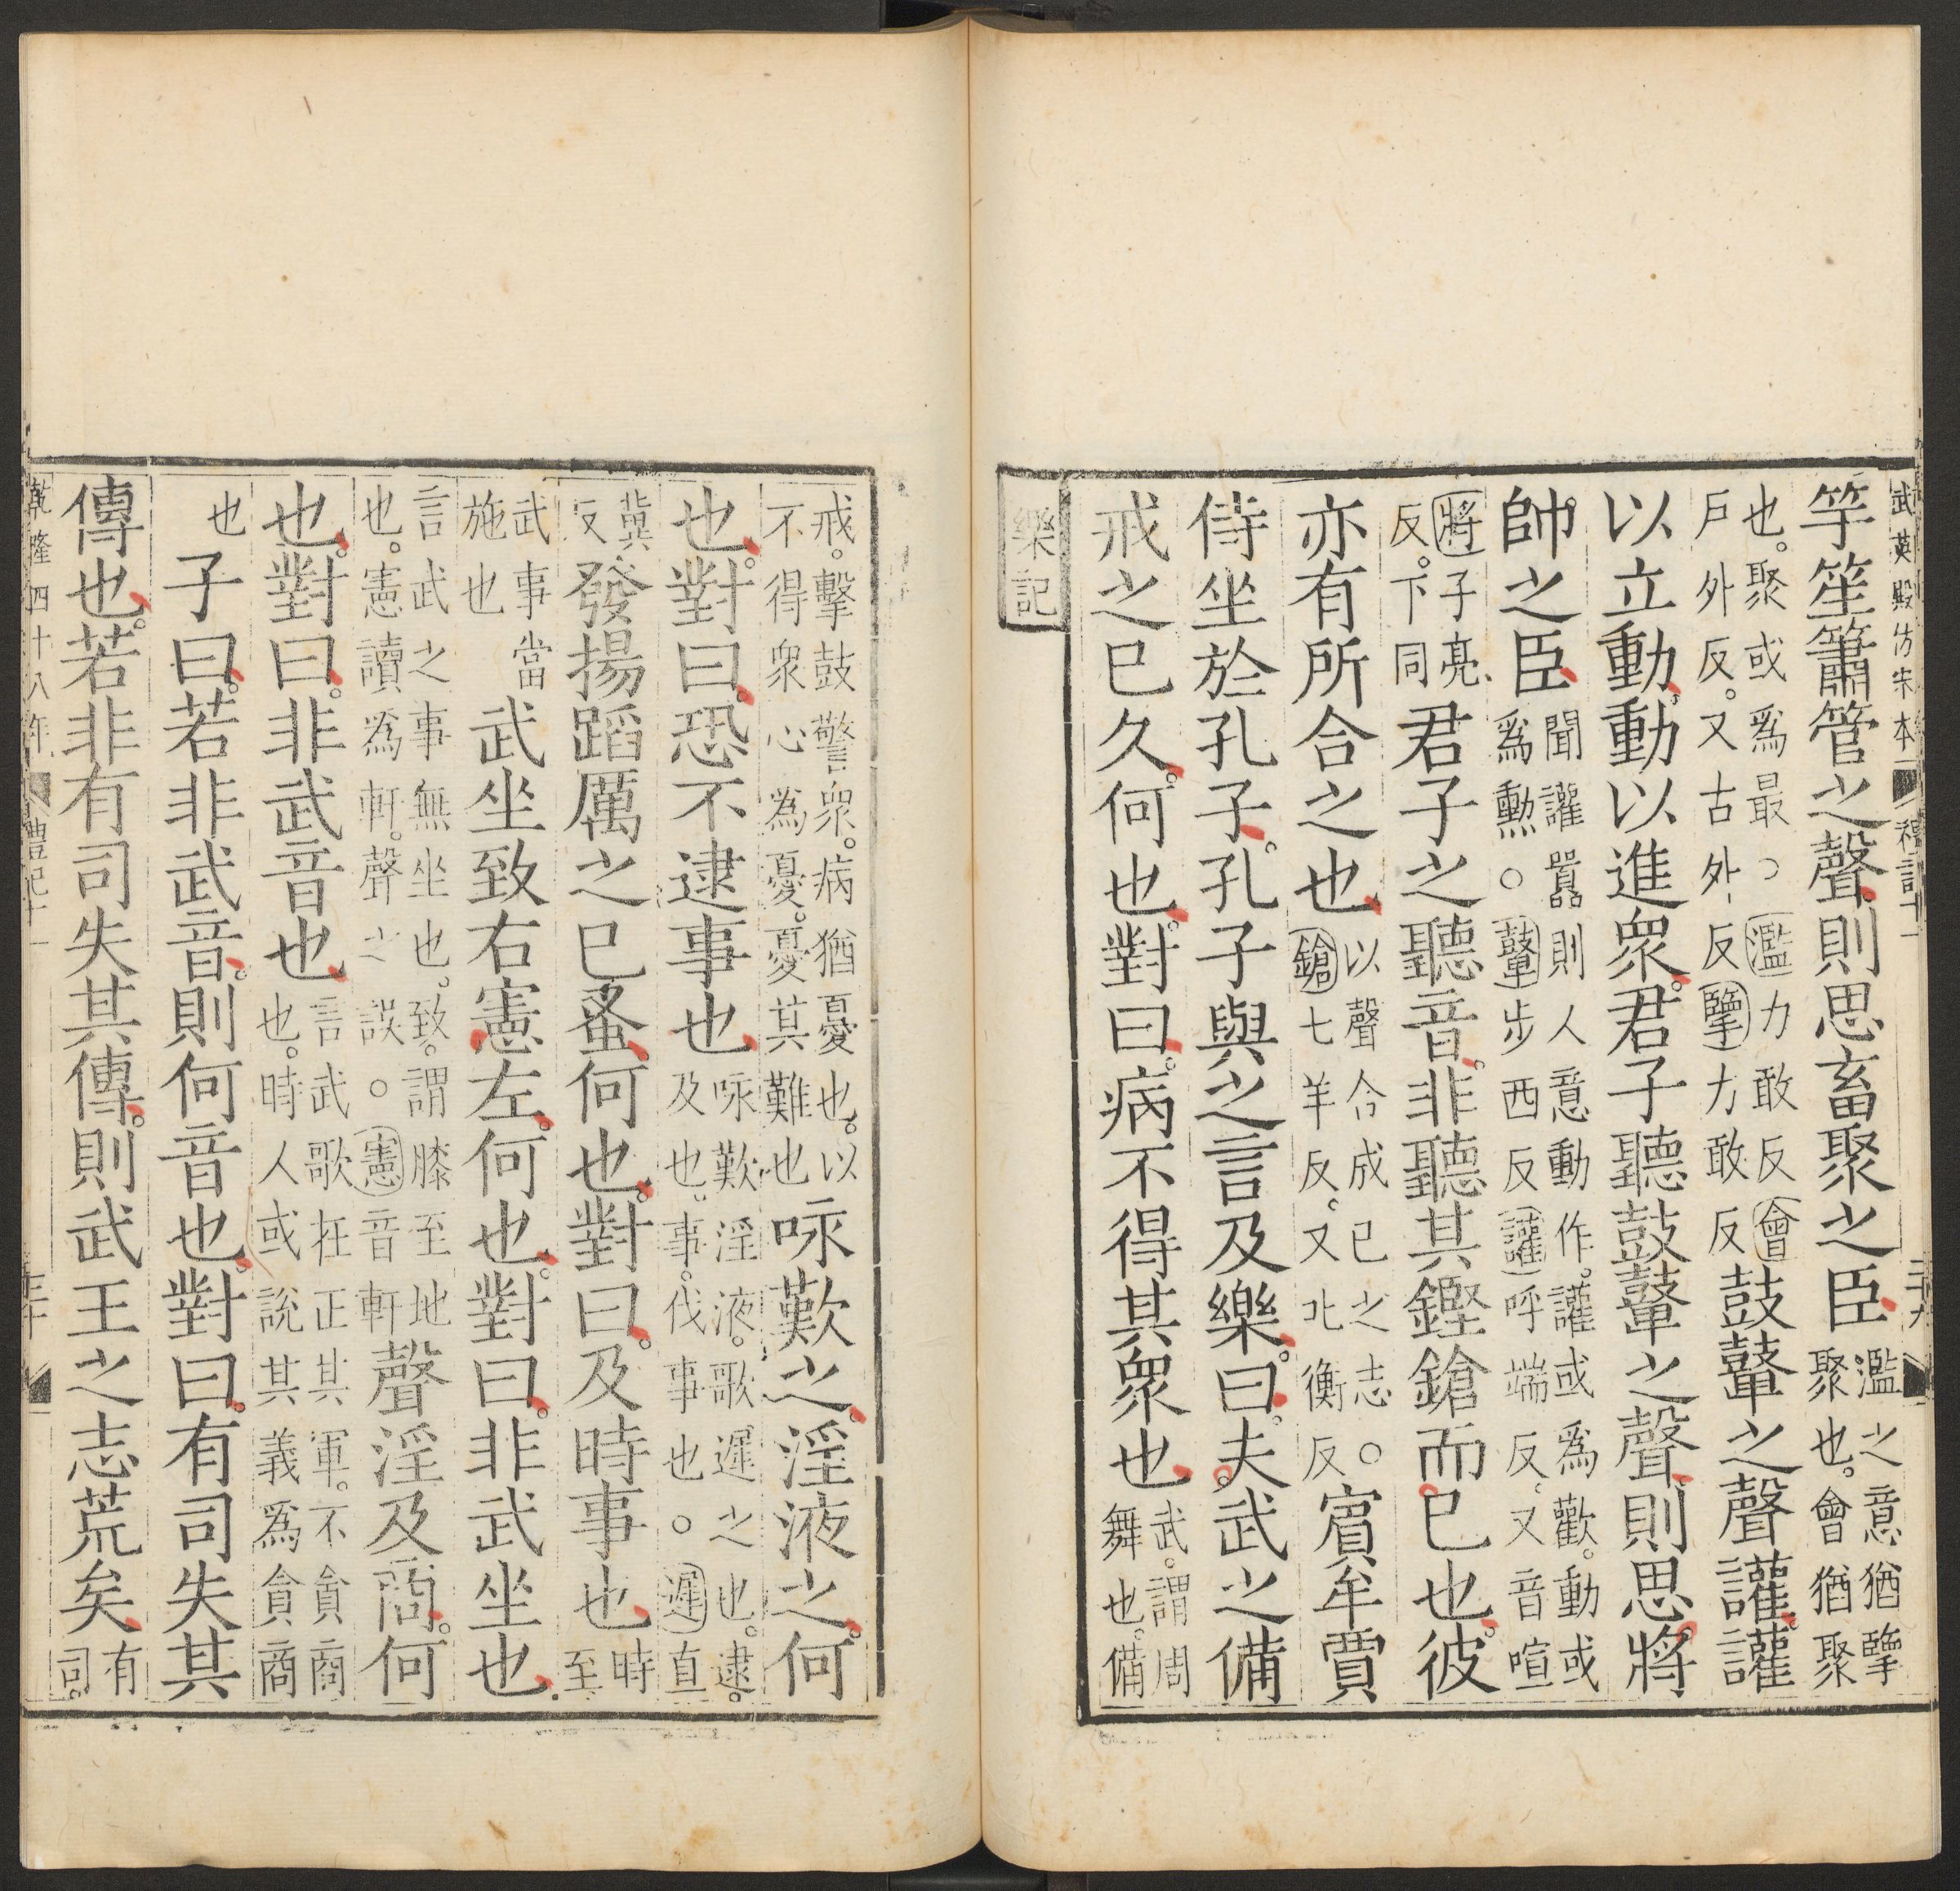 武英殿仿宋本 禮記十一 三十九
竽笙簫管之聲則思畜聚之臣濫之意猶擥聚也會猶聚
也聚或爲最○濫力敢反會戶外反又古外反擥力敢反鼓鼙之聲讙讙
以立動動以進眾君子聽鼓鼙之聲則思將
帥之臣聞讙囂則人意動作讙或爲歡動或爲勳○鼙步西反讙呼端反又音喧
將子亮反下同君子之聽音非聽其鏗鎗而已也彼
亦有所合之也以聲合成已之志○鎗七羊反又北衡反賓牟賈
侍坐於孔子孔子與之言及樂曰夫武之備
戒之已久何也對曰病不得其眾也武謂周舞也備
樂記
戒擊鼓警眾病猶憂也以不得眾心爲憂憂其難也咏歎之淫液之何
也對曰恐不逮事也咏歎淫液歌遲之也逮及也事伐事也○遲直
冀反發揚蹈厲之已蚤何也對曰及時事也時至
武事當施也武坐致右憲左何也對曰非武坐也
言武之事無坐也致謂膝至地也憲讀爲軒聲之誤○憲音軒聲淫及商何
也對曰非武音也言武歌在正其軍不貪商也時人或說其義爲貪商
也子曰若非武音則何音也對曰有司失其
傳也若非有司失其傳則武王之志荒矣有司
乾隆四十八年 禮記十一 三十